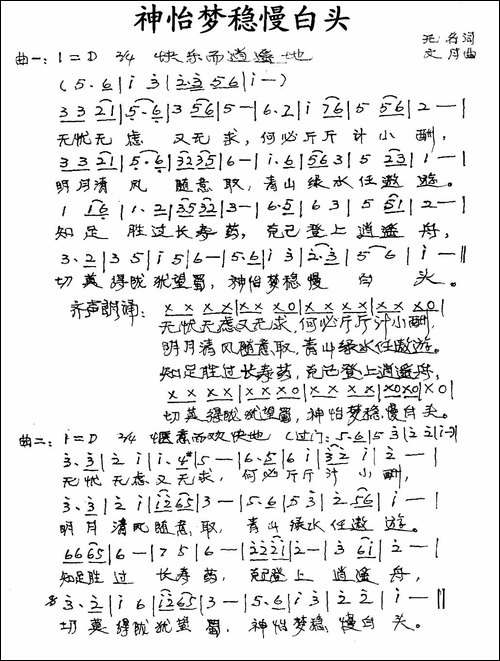 神怡梦稳慢白头
无名词
文月曲
曲一: 1=D 2/4 快乐而逍遥地
(5·6|i 3|2·3 56|i—)
3 3 21|5·6|3 56|5—|6·2|i 76|5 56|2—|
无忧无虑 又无求,何必斤斤计小酬,
3 3 21|5·6|3235|6—|i·6|563|5 23|1—|
明月清风 随意取,青山绿水任遨游。
1 16|1·2|3532|3—|6·5|6 3|5 51|2—|
知足 胜过长寿药,克己登上逍遥舟,
3·2|3 5|i 5|6—|5·6|i 3|2·3|5 6|i—‖
切莫得陇犹望蜀,神怡梦稳慢 白 头。
齐声朗诵: x x x x|x x x0|x x x x|x x x0|
无忧无虑又无求,何必斤斤计小酬,
明月清风随意取,青山绿水任遨游。
知足胜过长寿药,克己登上逍遥舟,
x x x x|x x x0|x x x x|x0x0|x0|
切莫得陇犹望蜀,神怡梦稳慢白头。
曲二: 1=D 2/4 惬意而欢快地 (过门: 5·6|5 3|2 2|i—)
3·3|2 i|i·4#|5—|6·5|6 i|32 i|2—|
无忧无虑又无求,何必斤斤计小酬,
3·3|2 i|i265|3—|5·6|5 3|2·56|i—|
明月清风随意取,青山绿水任遨游。
6665|6—|7 5|6—|2221|2—|3 6i|2—|
知足胜过 长寿药,克己登上 逍遥舟,
3·2|i 6|i265|3—|5·6|i 3|2 2|i—‖
切莫得陇犹望蜀,神怡梦稳慢白头。